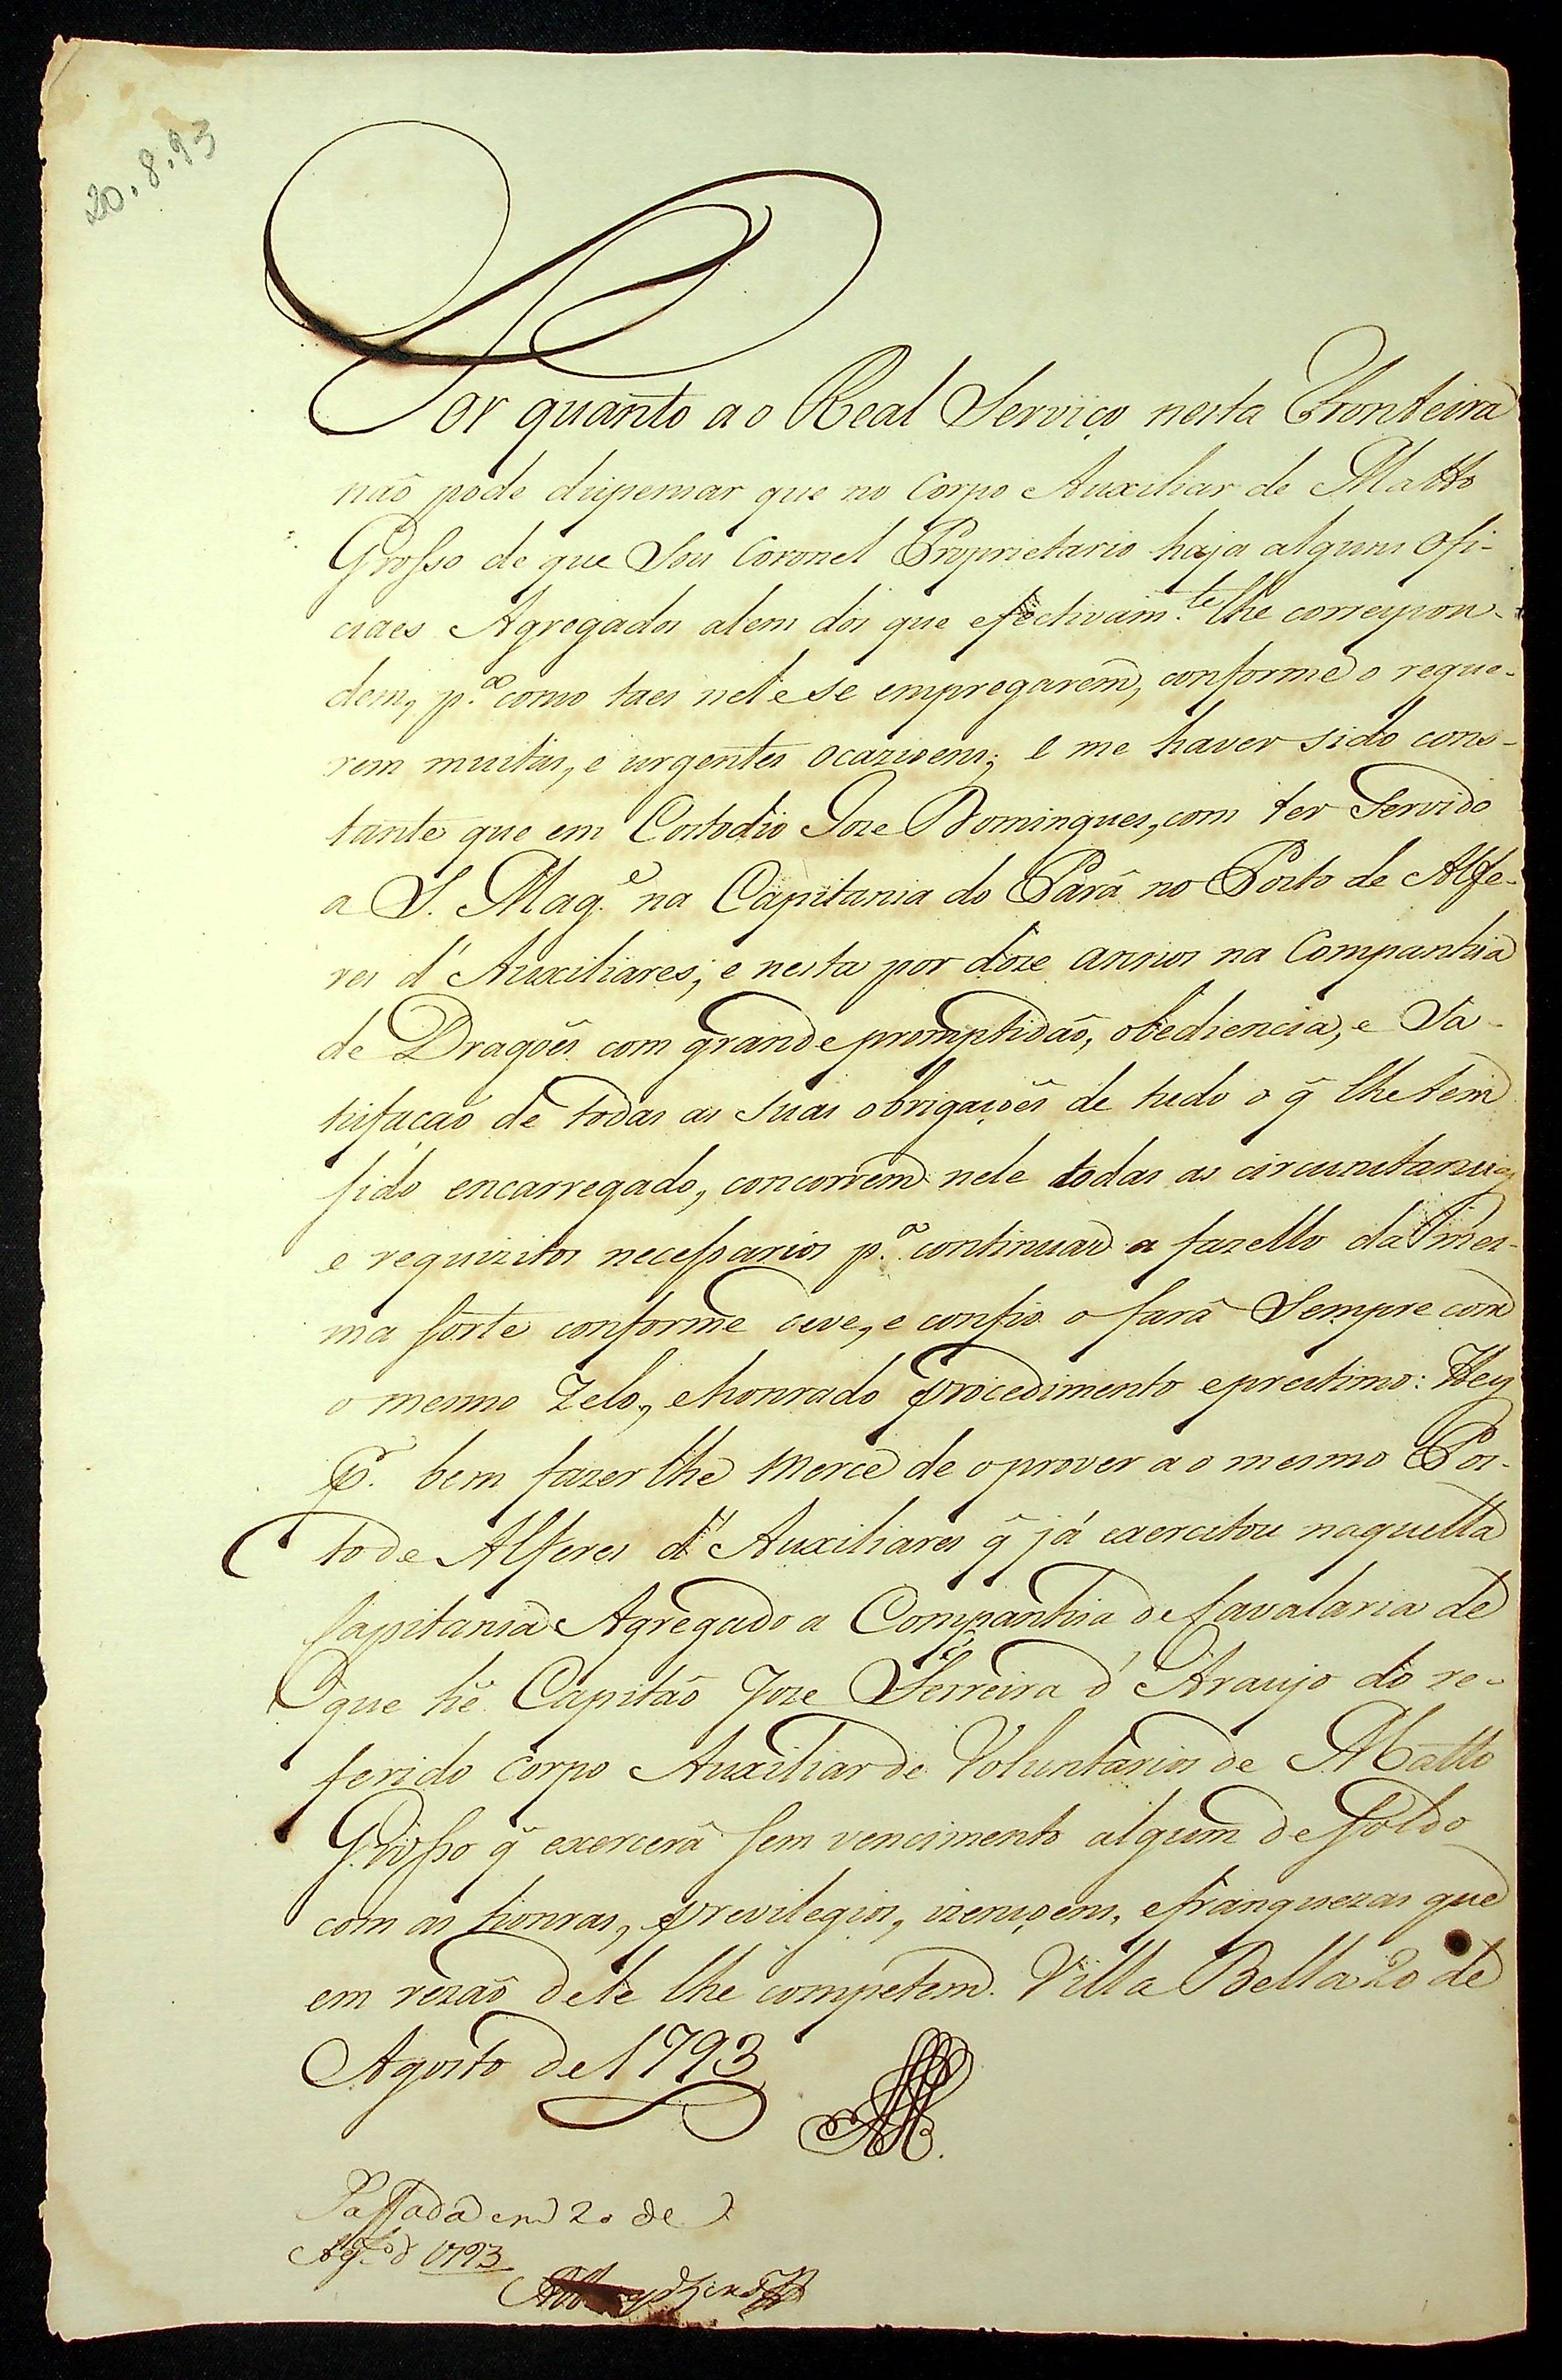 20.8.93
Por quanto ao Real Serviço nesta Fronteira
não pode dispensar que no Corpo Auxiliar de Matto
Grosso de que Sou Coronel Proprietario haja alguns Ofi-
ciaes Agregados alem dos que efectivam.te lhe correspon-
dem, p.a como taes nele se empregarem, conforme o reque-
rem muitas, e urgentes ocazioens; e me haver sido cons-
tante que em Costodio Joze Domingues, com ter Servido
a S. Mag.e na Capitania do Parâ no Posto de Alfe-
res d'Auxiliares; e nesta por doze annos na Companhia
de Dragoẽs com grande promptidaõ, obediencia, e Sa-
tisfacaõ de todas as suas obrigaçoẽs de tudo o q̃ lhe tem
sido encarregado, concorrem nele todas as circunstancias
e requizitos necessarios p.a continuar a fazello da mes-
ma sorte conforme deve, e confio o farâ Sempre com
o mesmo Zelo, e honrado procedimento e prestimo: Hey
p.r bem fazer lhe merce de o prover ao mesmo Pos-
to de Alferes d'Auxiliares q̃ já exercitou naquella
Capitania Agregado a Companhia de Cavalaria de
que hê Capitão Joze Ferreira d'Araujo do re-
ferido Corpo Auxiliar de Voluntarios de Matto
Grosso q̃ exercerâ sem vencimento algum de Soldo
com as honras, previlegios, izençoens, e franquezas que
em rezaõ dele lhe competem. Villa Bella 20 de
Agosto de 1793
Passada em 20 de
Ag.to d 1793